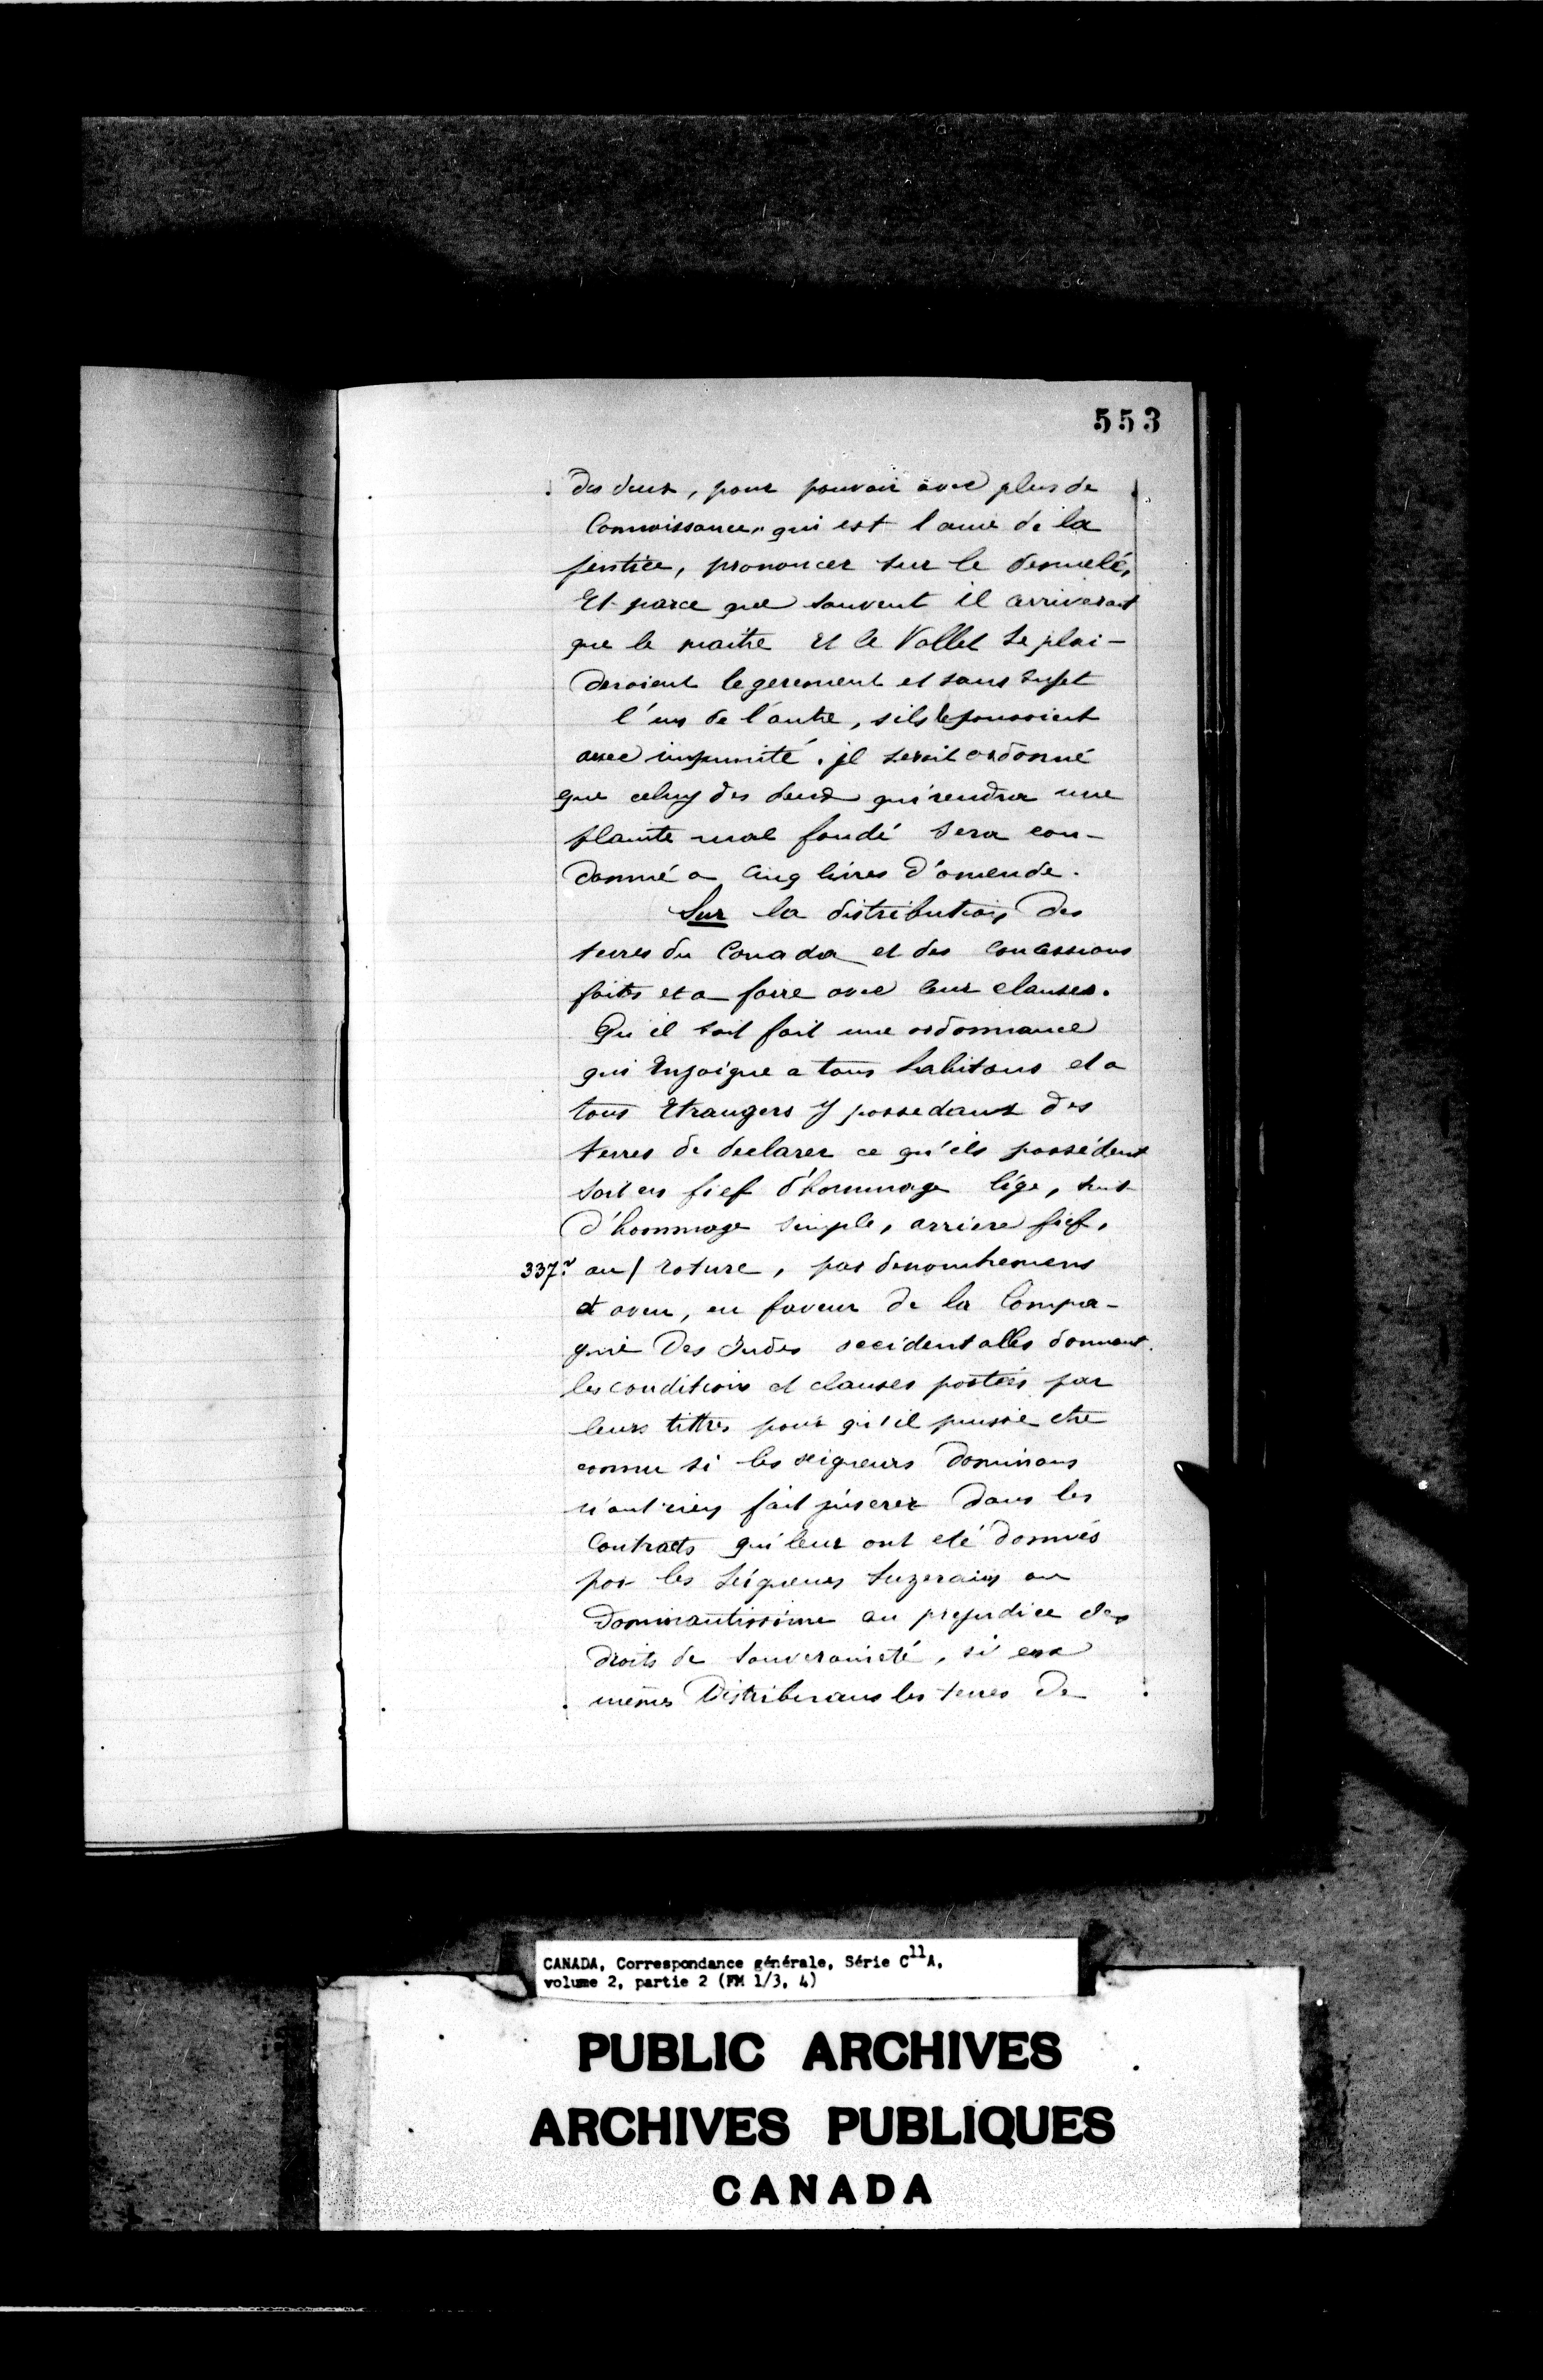 553
des deux, pour pouvoir avec plus de
Connoissance, qui est l'ame de la
justice, prononcer sur le demelé,
Et parce que souvent il arriveroit
que le maitre et le Vallet se plai-
deroient legerement et sans sujet
l'un de l'autre, sils le pouvoient
avec impunité, jl seroit ordonné
que celuy des deux qui rendra une
plainte mal fondé sera con-
damné a cinq livres d'amende.
Sur la distribution des
terres du Canada et des concessions
faites et a faire avec leur clauses.
Qu'il soit fait une ordonnance
qui Enjoigne a tous habitans et a
tous Etrangers y possedant des
terres de declarer ce qu'ils possédent
soit en fief d'hommage lige, soit
d'hommage simple, arriere fief,
337. ou / roture, par denombremens
et aveu, en faveur de la Compa-
gnie Des Indes occidentalles donnant
les conditions et clauses portées par
leurs tittres pour qu'il puisse etre
connu si les seigneurs Dominans
n'ont rien fait jnserer dans les
Contracts qui leur ont eté donnés
par les Seigneurs Suzerains ou
Dominantissime au prejudice des
droits de Souveraineté, si eux
mêmes Distribuans les terres De
CANADA, Correspondance générale, Série C11A,
volume 2, partie 2 (FM 1/3, 4)
PUBLIC ARCHIVES
ARCHIVES PUBLIQUES
CANADA